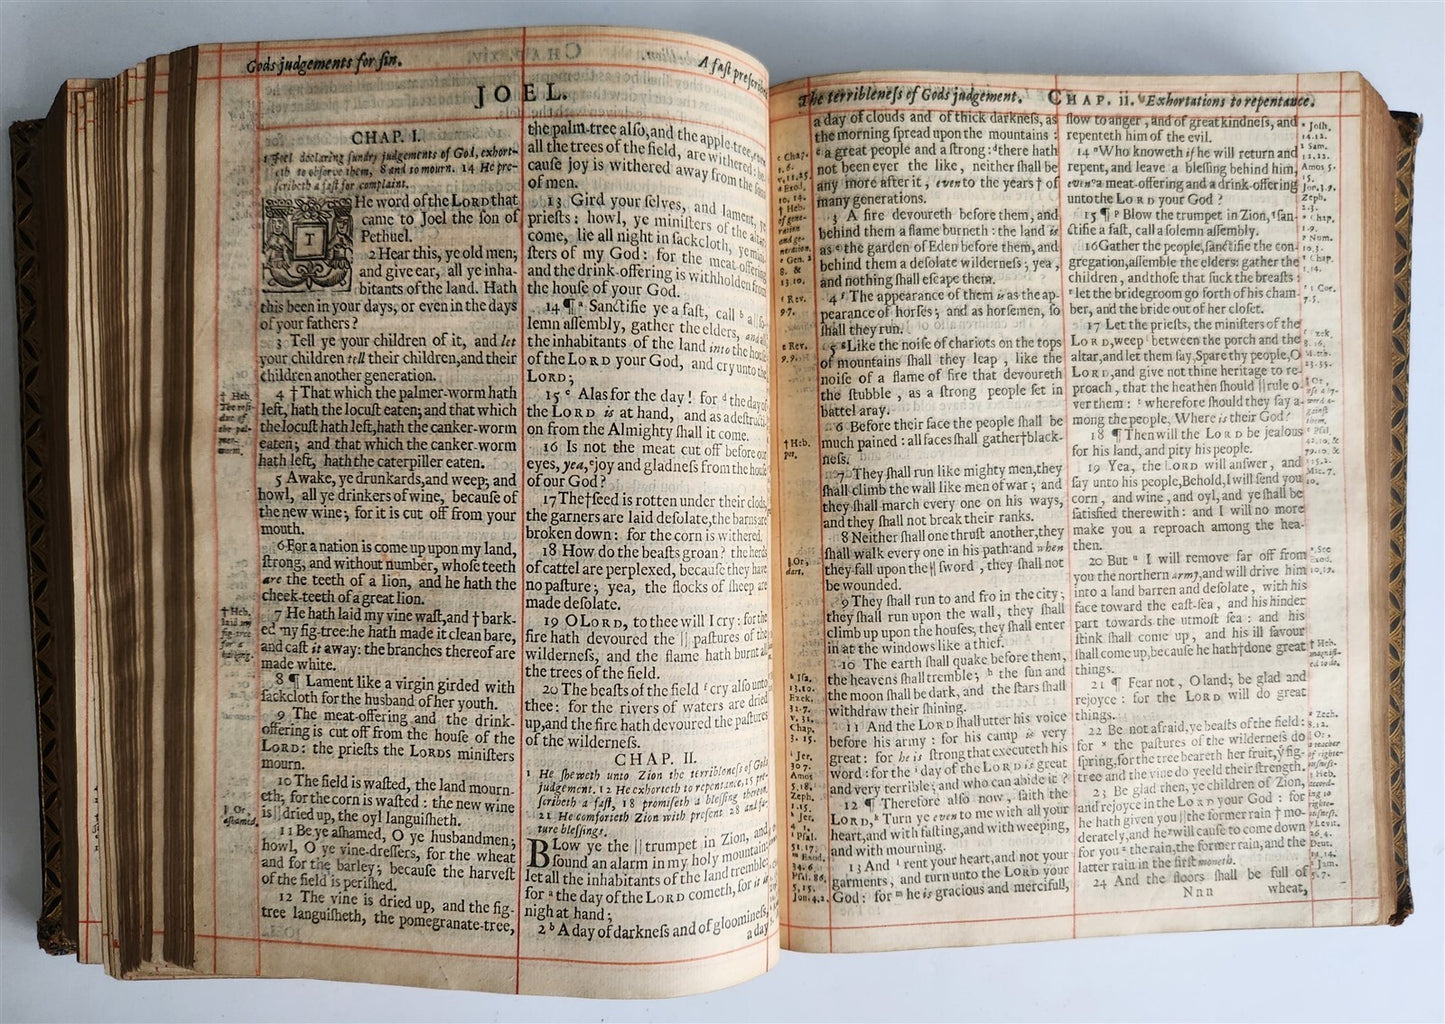 Gods judgements for sin.
A fast prescribed
JOEL.
CHAP. I.
1 Joel declaring sundry judgements of God, exhort-
eth to observe them, 8 and to mourn. 14 He pre-
scribeth a fast for complaint.
THe word of the LORD that
came to Joel the son of
Pethuel.
2 Hear this, ye old men;
and give ear, all ye inha-
bitants of the land. Hath
this been in your days, or even in the days
of your fathers?
3 Tell ye your children of it, and let
your children tell their children, and their
children another generation.
4 † That which the palmer-worm hath
left, hath the locust eaten; and that which
the locust hath left, hath the canker-worm
eaten; and that which the canker-worm
hath left, hath the caterpiller eaten.
5 Awake, ye drunkards, and weep; and
howl, all ye drinkers of wine, because of
the new wine; for it is cut off from your
mouth.
6 For a nation is come up upon my land,
strong, and without number, whose teeth
are the teeth of a lion, and he hath the
cheek-teeth of a great lion.
7 He hath laid my vine wast, and † bark-
ed my fig-tree: he hath made it clean bare,
and cast it away: the branches thereof are
made white.
8 ¶ Lament like a virgin girded with
sackcloth for the husband of her youth.
9 The meat-offering and the drink-
offering is cut off from the house of the
LORD: the priests the LORDS ministers
mourn.
10 The field is wasted, the land mourn-
eth; for the corn is wasted: the new wine
is || dried up, the oyl languisheth.
11 Be ye ashamed, O ye husbandmen;
howl, O ye vine-dressers, for the wheat
and for the barley; because the harvest
of the field is perished.
12 The vine is dried up, and the fig-
tree languisheth, the pomegranate-tree,
† Heb.
† Heb.
laid my
fig-tree
for a
barking.
|| Or,
ashamed.
the palm-tree also, and the apple-tree, even
all the trees of the field, are withered: be-
cause joy is withered away from the sons
of men.
13 Gird your selves, and lament, ye
priests: howl, ye ministers of the altar:
come, lie all night in sackcloth, ye mini-
sters of my God: for the meat-offering
and the drink-offering is withholden from
the house of your God.
14 ¶ a Sanctifie ye a fast, call b a so-
lemn assembly, gather the elders, and all
the inhabitants of the land into the house
of the LORD your God, and cry unto the
LORD;
15 c Alas for the day! for d the day of
the LORD is at hand, and as a destructi-
on from the Almighty shall it come.
16 Is not the meat cut off before our
eyes, yea, e joy and gladness from the house
of our God?
17 The † seed is rotten under their clods,
the garners are laid desolate, the barns are
broken down: for the corn is withered.
18 How do the beasts groan? the herds
of cattel are perplexed, because they have
no pasture; yea, the flocks of sheep are
made desolate.
19 O LORD, to thee will I cry: for the
fire hath devoured the || pastures of the
wilderness, and the flame hath burnt all
the trees of the field.
20 The beasts of the field f cry also unto
thee: for the rivers of waters are dried
up, and the fire hath devoured the pastures
of the wilderness.
CHAP. II.
1 He sheweth unto Zion the terribleness of Gods
judgement. 12 He exhorteth to repentance, 15 pre-
scribeth a fast, 18 promiseth a blessing thereon.
21 He comforteth Zion with present 28 and fu-
ture blessings.
BLow ye the || trumpet in Zion, and
sound an alarm in my holy mountain:
let all the inhabitants of the land tremble:
for a the day of the LORD cometh, for it is
nigh at hand;
2 b A day of darkness and of gloominess,
a day
The terribleness of Gods judgement.
CHAP. ii.
Exhortations to repentance.
a day of clouds and of thick darkness, as
the morning spread upon the mountains:
c a great people and a strong: d there hath
not been ever the like, neither shall be
any more after it, even to the years † of
many generations.
3 A fire devoureth before them, and
behind them a flame burneth: the land is
as e the garden of Eden before them, and
behind them a desolate wilderness; yea,
and nothing shall escape them.
4 f The appearance of them is as the ap-
pearance of horses; and as horsemen, so
shall they run.
5 g Like the noise of chariots on the tops
of mountains shall they leap, like the
noise of a flame of fire that devoureth
the stubble, as a strong people set in
battel aray.
6 Before their face the people shall be
much pained: all faces shall gather † black-
ness.
7 They shall run like mighty men, they
shall climb the wall like men of war; and
they shall march every one on his ways,
and they shall not break their ranks.
8 Neither shall one thrust another, they
shall walk every one in his path: and when
they fall upon the || sword, they shall not
be wounded.
9 They shall run to and fro in the city;
they shall run upon the wall, they shall
climb up upon the houses; they shall enter
in at the windows like a thief.
10 The earth shall quake before them,
the heavens shall tremble; h the sun and
the moon shall be dark, and the stars shall
withdraw their shining.
11 And the LORD shall utter his voice
before his army: for his camp is very
great: for he is strong that executeth his
word: for the i day of the LORD is great
and very terrible; and who can abide it?
12 ¶ Therefore also now, saith the
LORD, k Turn ye even to me with all your
heart, and with fasting, and with weeping,
and with mourning.
13 And l rent your heart, and not your
garments, and turn unto the LORD your
God: for m he is gracious and merciful,
† Heb.
|| Or,
dart.
h Isa.
13.10.
Ezek.
32.7.
Chap.
3. 15.
i Jer.
30.7.
Amos
5.18.
Zeph.
1.15.
k Jer.
4. 1.
l Psal.
51.17.
m Exod.
34.6.
Psal. 86.
5, 15.
Jon. 4.2.
slow to anger, and of great kindness, and
repenteth him of the evil.
14 n Who knoweth if he will return and
repent, and leave a blessing behind him,
even a meat-offering and a drink-offering
unto the LORD your God?
15 ¶ p Blow the trumpet in Zion, san-
ctifie a fast, call a solemn assembly.
16 Gather the people, sanctifie the con-
gregation, assemble the elders: gather the
children, and those that suck the breasts:
let the bridegroom go forth of his cham-
ber, and the bride out of her closet.
17 Let the priests, the ministers of the
LORD, weep between the porch and the
altar, and let them say, Spare thy people, O
LORD, and give not thine heritage to re-
proach, that the heathen should || rule o-
ver them: wherefore should they say a-
mong the people, Where is their God?
18 ¶ Then will the LORD be jealous
for his land, and pity his people.
19 Yea, the LORD will answer, and
say unto his people, Behold, I will send you
corn, and wine, and oyl, and ye shall be
satisfied therewith: and I will no more
make you a reproach among the hea-
then.
20 But I will remove far off from
you the northern army, and will drive him
into a land barren and desolate, with his
face toward the east-sea, and his hinder
part towards the utmost sea: and his
stink shall come up, and his ill savour
shall come up, because he hath † done great
things.
21 ¶ Fear not, O land; be glad and
rejoyce: for the LORD will do great
things.
22 Be not afraid, ye beasts of the field:
for x the pastures of the wilderness do
spring, for the tree beareth her fruit, ye fig-
tree and the vine do yeeld their strength.
23 Be glad then, ye children of Zion,
and rejoyce in the LORD your God: for
he hath given you || the former rain † mo-
derately, and he will cause to come down
for you the rain, the former rain, and the
latter rain in the first moneth.
24 And the floors shall be full of
Nnn
wheat,
Josh.
14.12.
1 Sam.
Amos 5.
15.
Jon. 3.9.
Zeph.
2.3.
Chap.
1.9.
Num.
10.3.
Chap.
1.14.
1 Cor.
7.5.
† Heb.
Zech.
8.12.
|| Or,
a teacher
Deut.